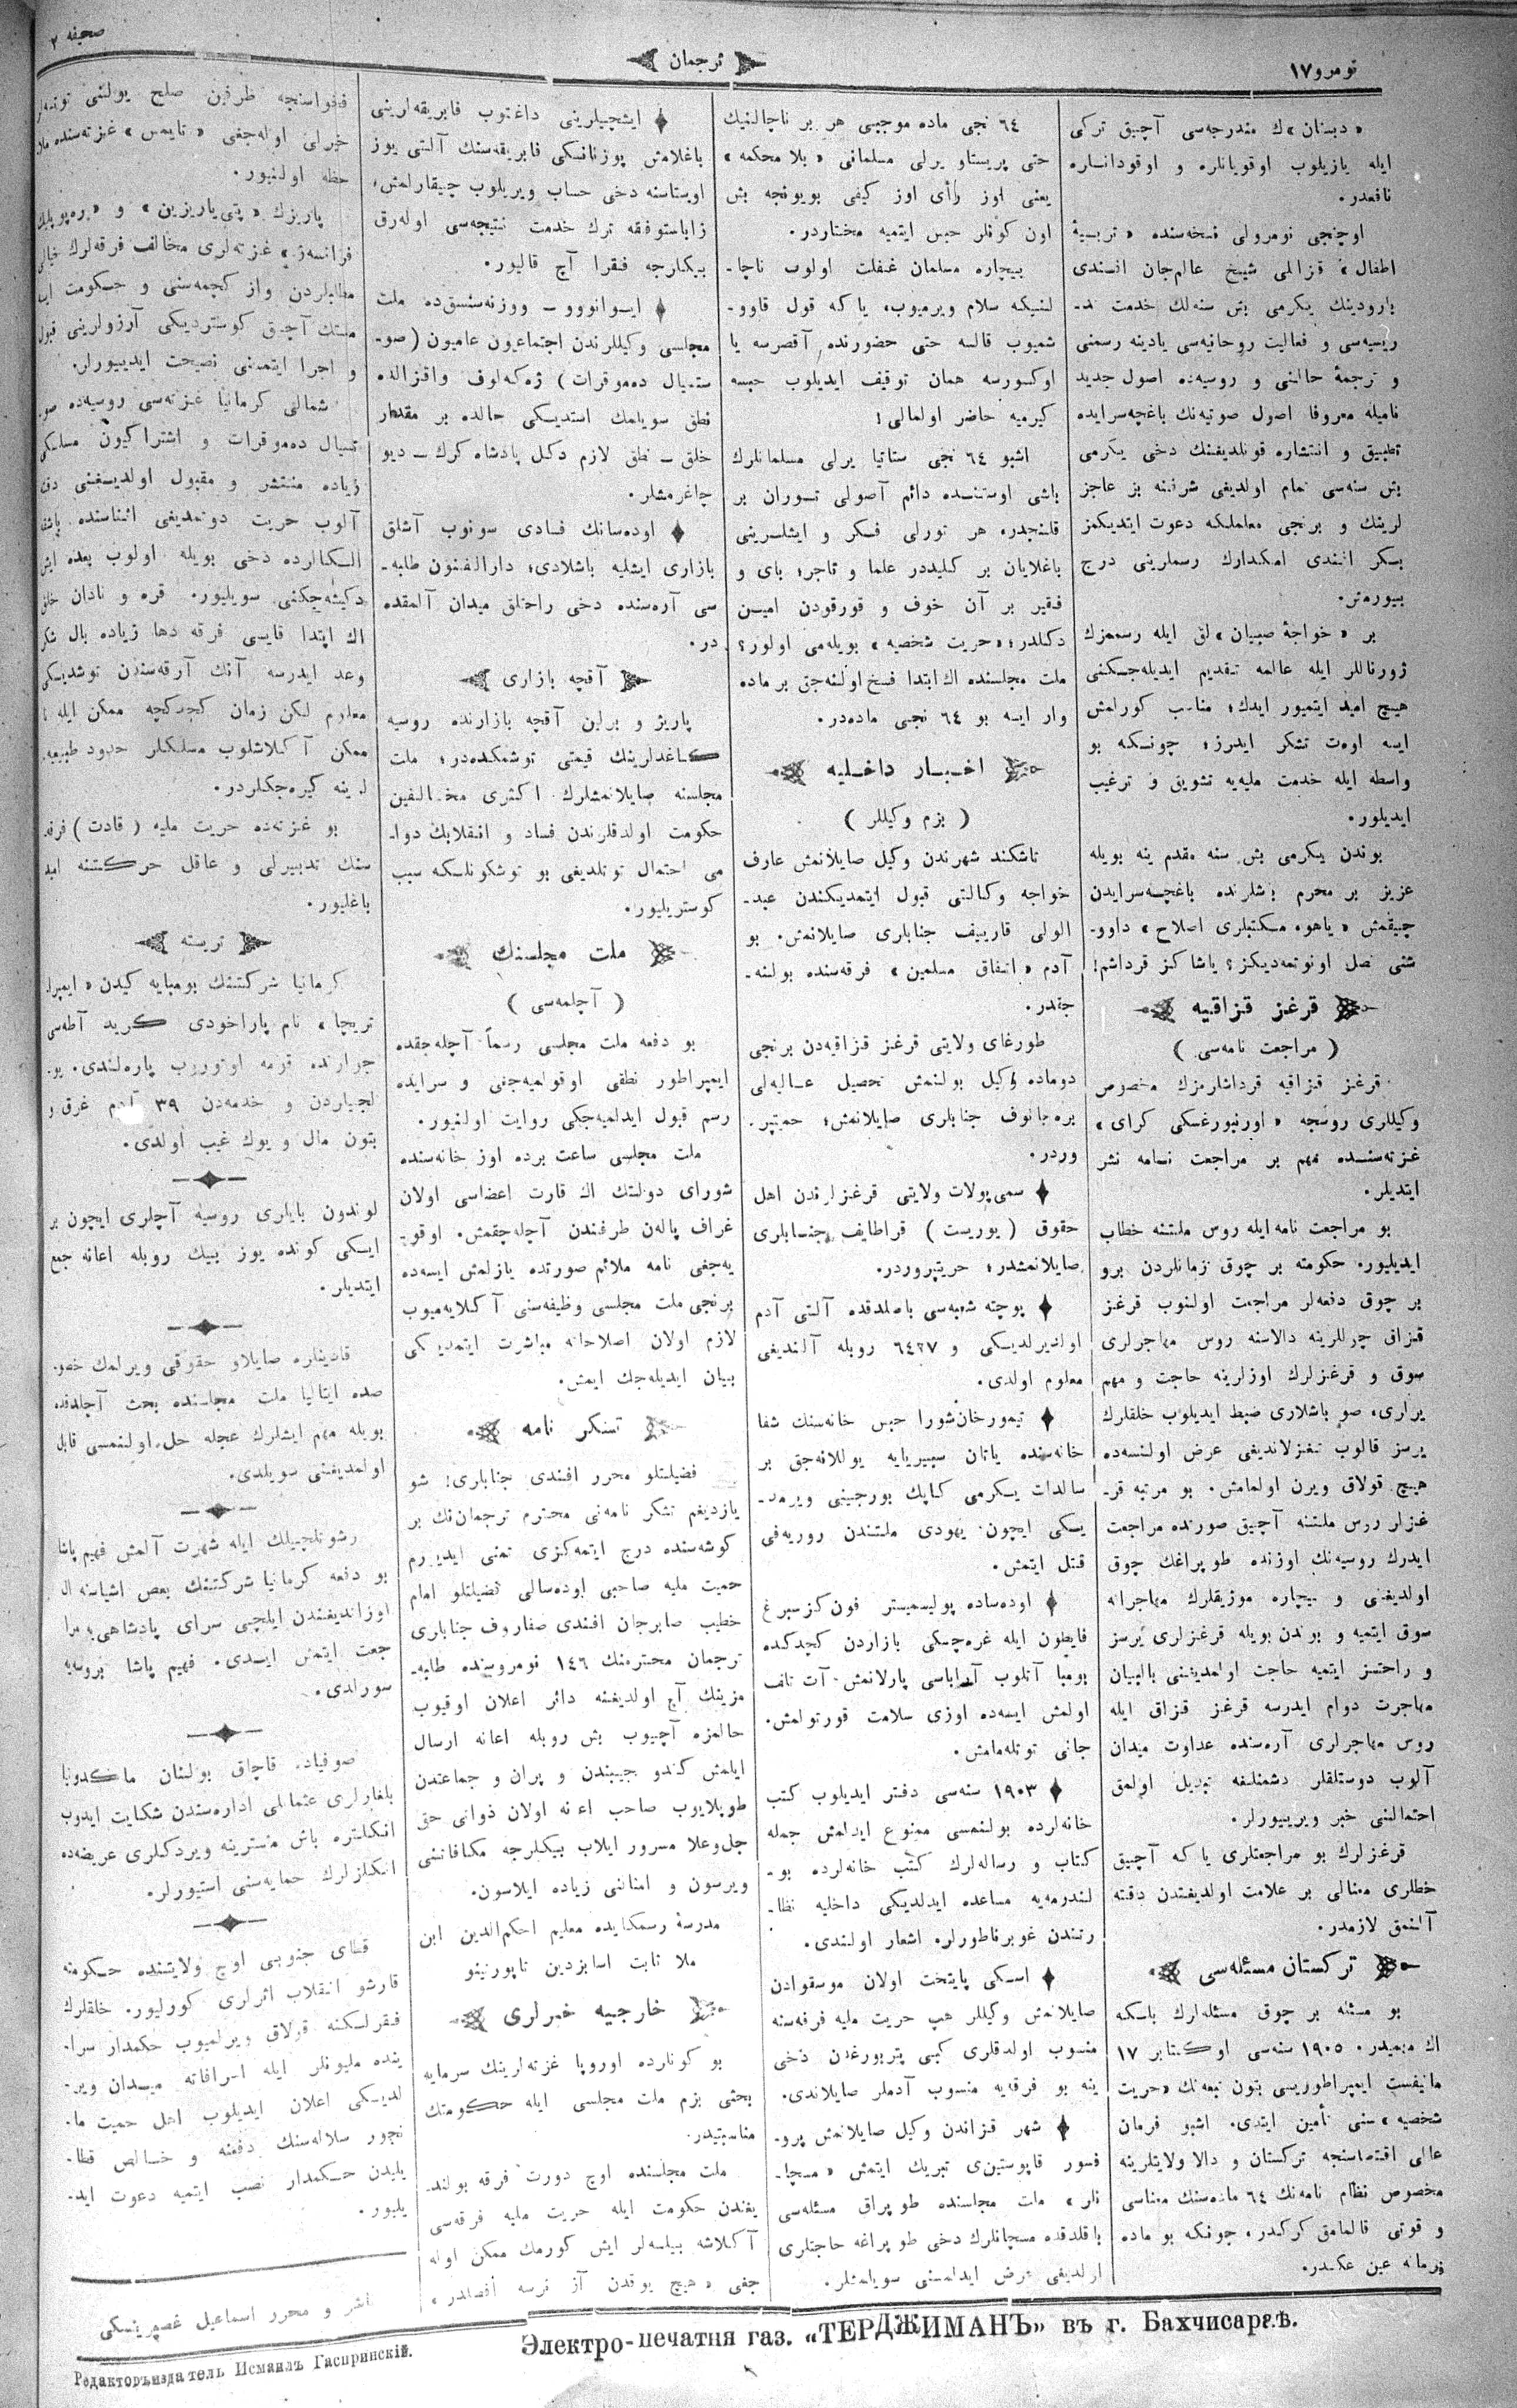 نومرو ١٧
ترجمان
صحيفه ٢
«دبستان»ڭ مندرجه‌سی آچیق تركی
ایله یازیلوب اوقویانلره و اوقودانلره
نافعدر.
اوچنجی نومرولی نسخه‌سنده «تربیهٔ
اطفال» قزانلی شیخ عالم‌جان افندی
بارودینك یكرمی بش سنه‌لك خدمت تد-
ریسیه‌سی و فعالیت روحانیه‌سی یادینه رسمنی
و ترجمهٔ حالنی و روسیه‌ده اصول جدید
نامیله معروف اصول صوتیه‌نك باغچه‌سرایده
تطبیق و انتشاره قونلدیغنك دخی یكرمی
بش سنه‌سی تمام اولدیغی شرفنه بز عاجز
لرینك و برنجی معلملكه دعوت ایتدیكمز
بكر افندی امكدارك رسملرینی درج
بیورمش.
بر «خواجهٔ صبیان»لق ایله رسممزك
ژورناللر ایله عالمه تقدیم ایدیله‌جكنی
هیچ امید ایتمیور ایدك؛ مناسب كورلمش
ایسه اوەت تشكر ایدرز؛ چونكه بو
واسطه ایله خدمت ملیه‌یه تشویق و ترغیب
ایدیلور.
بوندن یكرمی بش سنه مقدم ینه بویله
عزیز بر محرم باشلرنده باغچه‌سرایدن
چیقمش «یاهو، مكتبلری اصلاح» داوو-
شنی نصل اونوتمه‌دیكز؟ یاشاكز قرداشم!
قرغز قزاقیه
(مراجعت نامه‌سی)
قرغز قزاقیه قرداشلرمزك مخصوص
وكیللری روسجه «اورنبورغسكی كرای»
غزته‌سنده مهم بر مراجعت نامه نشر
ایتدیلر.
بو مراجعت نامه ایله روس ملتنه خطاب
ایدیلیور. حكومته بر چوق زمانلردن برو
بر چوق دفعه‌لر مراجعت اولنوب قرغز
قزاق چوللرینه دالاسنه روس مهاجرلری
سوق و قرغزلرك اوزلرینه حاجت و مهم
یرلری، صو باشلاری ضبط ایدیلوب خلقلرك
یرسز قالوب تنغزلاندیغی عرض اولنسه‌ده
هیچ قولاق ویرن اولمامش. بو مرتبه قر-
غزلر روس ملتنه آچیق صورتده مراجعت
ایدرك روسیه‌نك اوزنده طوپراغك چوق
اولدیغنی و بیچاره موژیقلرك مهاجراته
سوق ایتمیه و بوندن بویله قرغزلری یرسز
و راحتسز ایتمیه حاجت اولمدیغنی بالبیان
مهاجرت دوام ایدرسه قرغز قزاق ایله
روس مهاجرلری آره‌سنده عداوت میدان
آلوب دوستلقلر دشمنلغه تبدیل اولمق
احتمالنی خبر ویرییورلر.
قرغزلرك بو مراجعتلری یاكه آچیق
خطلری معنالی بر علامت اولدیغندن دقته
آلنمق لازمدر.
تركستان مسئله‌سی
بو مسئله بر چوق مسئله‌لرك باسكه
اك مهمیدر. ١٩٠٥ سنه‌سی اوكتابر ١٧
مانیفست ایمپراطوریسی بتون تبعه‌نك «حریت
شخصیه»سنی تأمین ایتدی. اشبو فرمان
عالی اقتضاسنجه تركستان و دالا ولایتلرینه
مخصوص نظام نامه‌نك ٦٤ ماده‌سنك معناسی
و قوتی قالمامق كركدر. چونكه بو ماده
فرمانه عین عكسدر.
٦٤ نجی ماده موجبی هر بر ناچالنیك
حتی پریستاو یرلی مسلمانی «بلا محكمه»
یعنی اوز رأی اوز كیفی بویونجه بش
اون كونلر حبس ایتمیه مختاردر.
بیچاره مسلمان غفلت اولوب ناچا-
لنیكه سلام ویرمیوب، یاكه قول قاوو-
شمیوب قالسه حتی حضورنده آقصرسه یا
اوكسورسه همان توقیف ایدیلوب حبسه
كیرمیه حاضر اولمالی!
اشبو ٦٤ نجی ستاتیا یرلی مسلمانلرك
باشی اوستنده دائم آصولی توران بر
قلنجدر. هر تورلی فكر و ایشلرینی
باغلایان بر كلیددر علما و تاجر؛ بای و
فقیر بر آن خوف و قورقودن امین
دكلدر؛ «حریت شخصیه» بویله‌می اولور؟
ملت مجلسنده اك ابتدا فسخ اولنه‌جق بر ماده
وار ایسه بو ٦٤ نجی ماده‌در.
اخبار داخلیه
(بزم وكیللر)
تاشكند شهرندن وكیل صایلانمش عارف
خواجه وكالتی قبول ایتمدیكندن عبد-
الولی قارییف جنابلری صایلانمش. بو
آدم «اتفاق مسلمین» فرقه‌سنده بولنه-
جقدر.
طورغای ولایتی قرغز قزاقیه‌دن برنجی
دوماده وكیل بولنمش تحصیل عالیه‌لی
بره‌جانوف جنابلری صایلانمش؛ حمیتپر-
وردر.
سمی‌پولات ولایتی قرغزلرندن اهل
حقوق (یوریست) قراطایف جنابلری
صایلانمشدر؛ حریتپروردر.
پوچته شعبه‌سی باصلدقده آلتی آدم
اولدیرلدیكی و ٦٤٢٧ روبله آلندیغی
معلوم اولدی.
تیمورخان‌شورا حبس خانه‌سنك شفا
خانه‌سنده یاتان سیبیریایه یوللانه‌جق بر
سالدات یكرمی كاپك بورجینی ویرمه-
یسكی ایچون یهودی ملتندن روریه‌فی
قتل ایتمش.
اوده‌ساده پولیسمیستر فون كزسبرغ
فایطون ایله غره‌چسكی بازاردن كچدكده
بومبا آتلوب آراباسی پارلانمش. آت تلف
اولمش ایسه‌ده اوزی سلامت قورتولمش.
جانی توتله‌مامش.
١٩٠٣ سنه‌سی دفتر ایدیلوب كتب
خانه‌لرده بولنمسی ممنوع ایدلمش جمله
كتاب و رساله‌لرك كتب خانه‌لرده بو-
لندرمه‌یه مساعده ایدلدیكی داخلیه نظا-
رتندن غوبرناطورلره اشعار اولندی.
اسكی پایتخت اولان موسقوادن
صایلانمش وكیللر هپ حریت ملیه فرقه‌سنه
منسوب اولدقلری كبی پتربورغدن دخی
ینه بو فرقه‌یه منسوب آدملر صایلاندی.
شهر قزاندن وكیل صایلانمش پرو-
فسور قاپوستین‌ی تبریك ایتمش «مسچا-
نلر» ملت مجلسنده طوپراق مسئله‌سی
باقلدقده مسچانلرك دخی طوپراغه حاجتلری
اولدیغی عرض ایدلمسنی سویلمشلر.
ایشچیلرینی داغتوب فابریقه‌لرینی
باغلامش پوزنانسكی فابریقه‌سنك آلتی یوز
اوستاسنه دخی حساب ویریلوب چیقارلمش؛
زاباستوفقه ترك خدمت نتیجه‌سی اوله‌رق
بیكلرجه فقرا آچ قالیور.
ایوانوو - ووزنه‌سنسق‌ده ملت
مجلسی وكیللرندن اجتماعیون عامیون (صو-
ستیال ده‌موقرات) ژه‌كه‌لوف واقزالده
نطق سویلمك استدیكی حالده بر مقدار
خلق - نطق لازم دكل پادشاه كرك - دیو
چاغرمشلر.
اوده‌سانك فسادی سونوب آشلق
بازاری ایشلیه باشلادی؛ دارالفنون طلبه-
سی آره‌سنده دخی راحتلق میدان آلمقده
در.
آقچه بازاری
پاریژ و برلین آقچه بازارنده روسیه
كاغدلرینك قیمتی توشمكده‌در؛ ملت
مجلسنه صایلانمشلرك اكثری مخالفین
حكومت اولدقلرندن فساد و انقلابك دوا-
می احتمال توتلدیغی بو توشكونلكه سبب
كوستریلیور.
ملت مجلسنك
(آچلمه‌سی)
بو دفعه ملت مجلسی رسماً آچله‌جقده
ایمپراطور نطقی اوقولمیه‌جغی و سرایده
رسم قبول ایدلمیه‌جكی روایت اولنیور.
ملت مجلسی ساعت برده اوز خانه‌سنده
شورای دولتك اك قارت اعضاسی اولان
غراف پاله‌ن طرفندن آچله‌جقمش. اوقو-
یه‌جغی نامه ملائم صورتده یازلمش ایسه‌ده
برنجی ملت مجلسی وظیفه‌سنی آكلایه‌میوب
لازم اولان اصلاحاته مباشرت ایتمدیكی
بیان ایدیله‌جك ایمش.
تشكر نامه
فضیلتلو محرر افندی جنابلری! شو
یازدیغم تشكر نامه‌نی محترم ترجمان‌نك بر
كوشه‌سنده درج ایتمه‌كزی تمنی ایدیورم
حمیت ملیه صاحبی اوده‌سالی فضیلتلو امام
خطیب صابرجان افندی صفاروف جنابلری
ترجمان محترمنك ١٤٦ نومروسنده طلبه-
مزینك آچ اولدیغنه دائر اعلان اوقیوب
حالمزه آچیوب بش روبله اعانه ارسال
ایلمش كندو جیبندن و یران و جماعتدن
طوپلایوب صاحب اعانه اولان ذواتی حق
جل‌وعلا مسرور ایلاب بیكلرجه مكافاتنی
ویرسون و امثالنی زیاده ایلاسون.
مدرسهٔ رسمكایده معلیم احكم‌الدین ابن
ملا ثابت
خارجیه خبرلری
بو كونلرده اوروپا غزته‌لرینك سرمایه
بحثی بزم ملت مجلسی ایله حكومتك
مناسبتیدر.
ملت مجلسنده اوچ دورت فرقه بولند-
یغندن حكومت ایله حریت ملیه فرقه‌سی
آكلاشه بیلسه‌لر ایش كورمك ممكن اوله
جغی «هیچ یوقدن آز نرسه افضلدر»
فحواسنجه طرفین صلح یولنی توتسه‌لر
خیرلی اوله‌جغی «تایمس» غزته‌سنده ملا
حظه اولنیور.
پاریزك «پتی‌پاریزین» و «ره‌پوبلیك
فرانسه‌ز» غزته‌لری مخالف فرقه‌لرك خیالی
مطالبلردن واز كچمه‌سنی و حكومت ایسه
ملتك آچیق كوستردیكی آرزولرینی قبول
و اجرا ایتمسنی نصیحت ایدییورلر.
شمالی كرمانیا غزته‌سی روسیه‌ده صو-
تسیال ده‌موقرات و اشتراكیون مسلكی
زیاده منتشر و مقبول اولدیغنی دقته
آلوب حریت دوتمدیغی اثناسنده باشقا
الكالرده دخی بویله اولوب بعده ایش
دكیشه‌جكنی سویلیور. قره و نادان خلق
اك ابتدا قایسی فرقه دها زیاده بال شكر
وعد ایدرسه آنك آرقه‌سندن توشدیكی
معلوم لكن زمان كچدكچه ممكن ایله نا
ممكن آكلاشلوب مسلكلر حدود طبیعیه-
لرینه كیره‌جكلردر.
بو غزته‌ده حریت ملیه (قادت) فرقه-
سنك تدبیرلی و عاقل حركتنه امید
باغلیور.
تریسته
كرمانیا شركتنك بومبایه كیدن «ایمپرا
تریچا» نام پاراخودی كرید آطه‌سی
جوارنده قومه اوتوروب پاره‌لندی. یو-
لجیلردن و خدمه‌دن ٣٩ آدم غرق و
بتون مال و یوك غیب اولدی.
لوندون بایلری روسیه آچلری ایچون بر
ایكی كونده یوز بیك روبله اعانه جمع
ایتدیلر.
قادینلره صایلاو حقوقی ویرلمك خصو-
صده ایتالیا ملت مجلسنده بحث آچلدقده
بویله مهم ایشلرك عجله حل اولنمسی قابل
اولمدیغنی سویلدی.
رشوتلچیلك ایله شهرت آلمش فهیم پاشا
بو دفعه كرمانیا شركتینك بعض اشیاسنه ال
اوزاندیغندن ایلچی سرای پادشاهی‌یه مرا
جعت ایتمش ایدی. فهیم پاشا بروسه‌یه
سورلدی.
صوفیاد. قاچاق بولنان ماكدونیا
بلغارلری عثمانلی اداره‌سندن شكایت ایدوب
انكلتره باش منسترینه ویردكلری عریضه‌ده
انكلزلرك حمایه‌سنی استیورلر.
قطای جنوبی اوچ ولایتنده حكومته
قارشو انقلاب اثرلری كورلیور. خلقلرك
فقرلكنه قولاق ویرلمیوب حكمدار سرا-
ینده ملیونلر ایله اسرافاته میدان ویر-
لدیكی اعلان ایدیلوب اهل حمیت ما-
نچور سلاله‌سنك دفعنه و خالص قطا-
یلیدن حكمدار نصب ایتمیه دعوت اید-
یلیور.
ناشر و محرر اسماعیل غصپرینسكی
Редакторъиздатель Исмаилъ Гаспринскій.
Электро-печатня газ. «ТЕРДЖИМАНЪ» въ г. Бахчисараѣ.